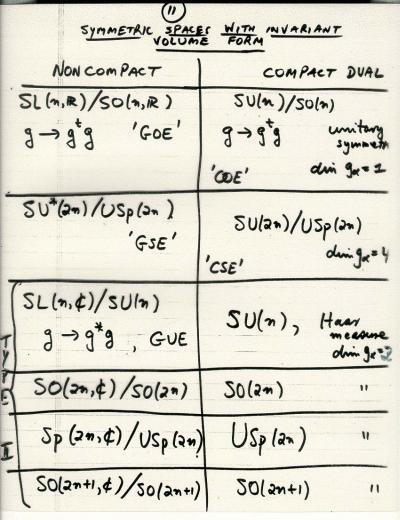 11
SYMMETRIC SPACES WITH INVARIANT
VOLUME FORM
NONCOMPACT
COMPACT DUAL
SL(n,ℝ)/SO(n,ℝ)
g → gᵗg 'GOE'
SU(n)/SO(n)
g → gᵗg unitary
symmetr
'COE' dim gα = 1
SU*(2n)/USp(2n)
'GSE'
SU(2n)/USp(2n)
'CSE' dim gα = 4
TYPE II
SL(n,ℂ)/SU(n)
g → g*g, GUE
SU(n), Haar
measure
dim gα = 2
SO(2n,ℂ)/SO(2n)
SO(2n) "
Sp(2n,ℂ)/USp(2n)
USp(2n) "
SO(2n+1,ℂ)/SO(2n+1)
SO(2n+1) "